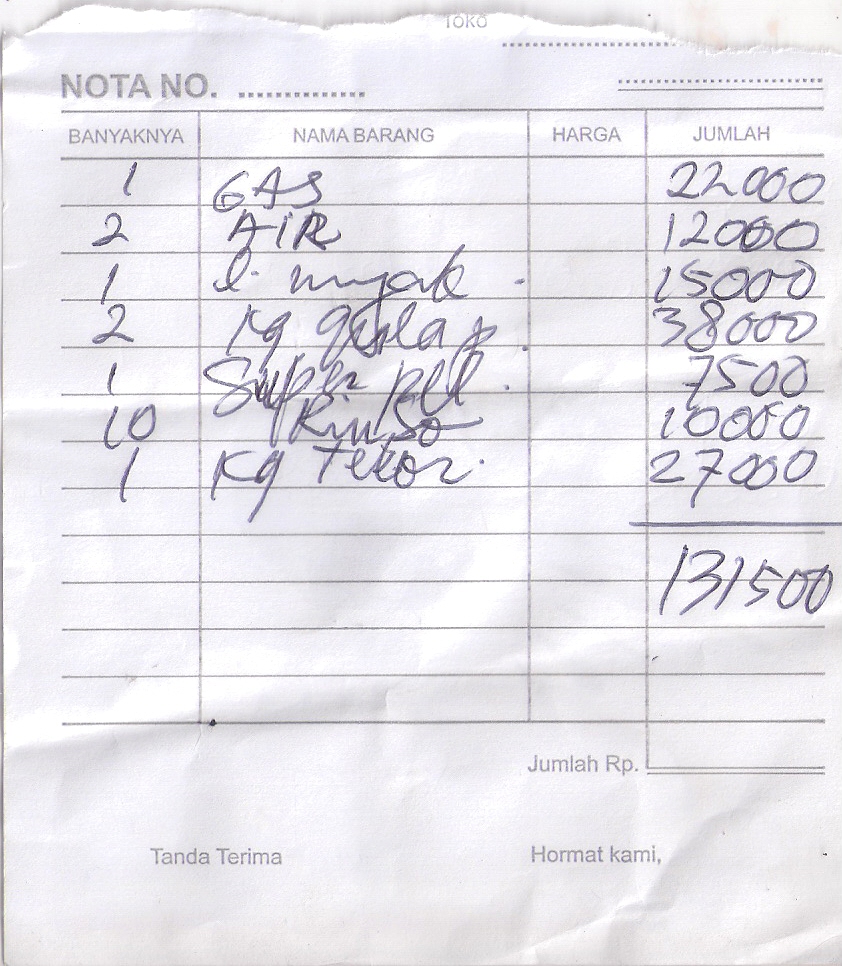 Toko
NOTA NO.
BANYAKNYA NAMA BARANG HARGA JUMLAH
1 GAS 22000
2 AIR 12000
1 l. minyak 15000
2 Kg gula p. 38000
1 Super pell. 7500
10 Rinso 10000
1 Kg Telor. 27000
131500
Jumlah Rp.
Tanda Terima Hormat kami,